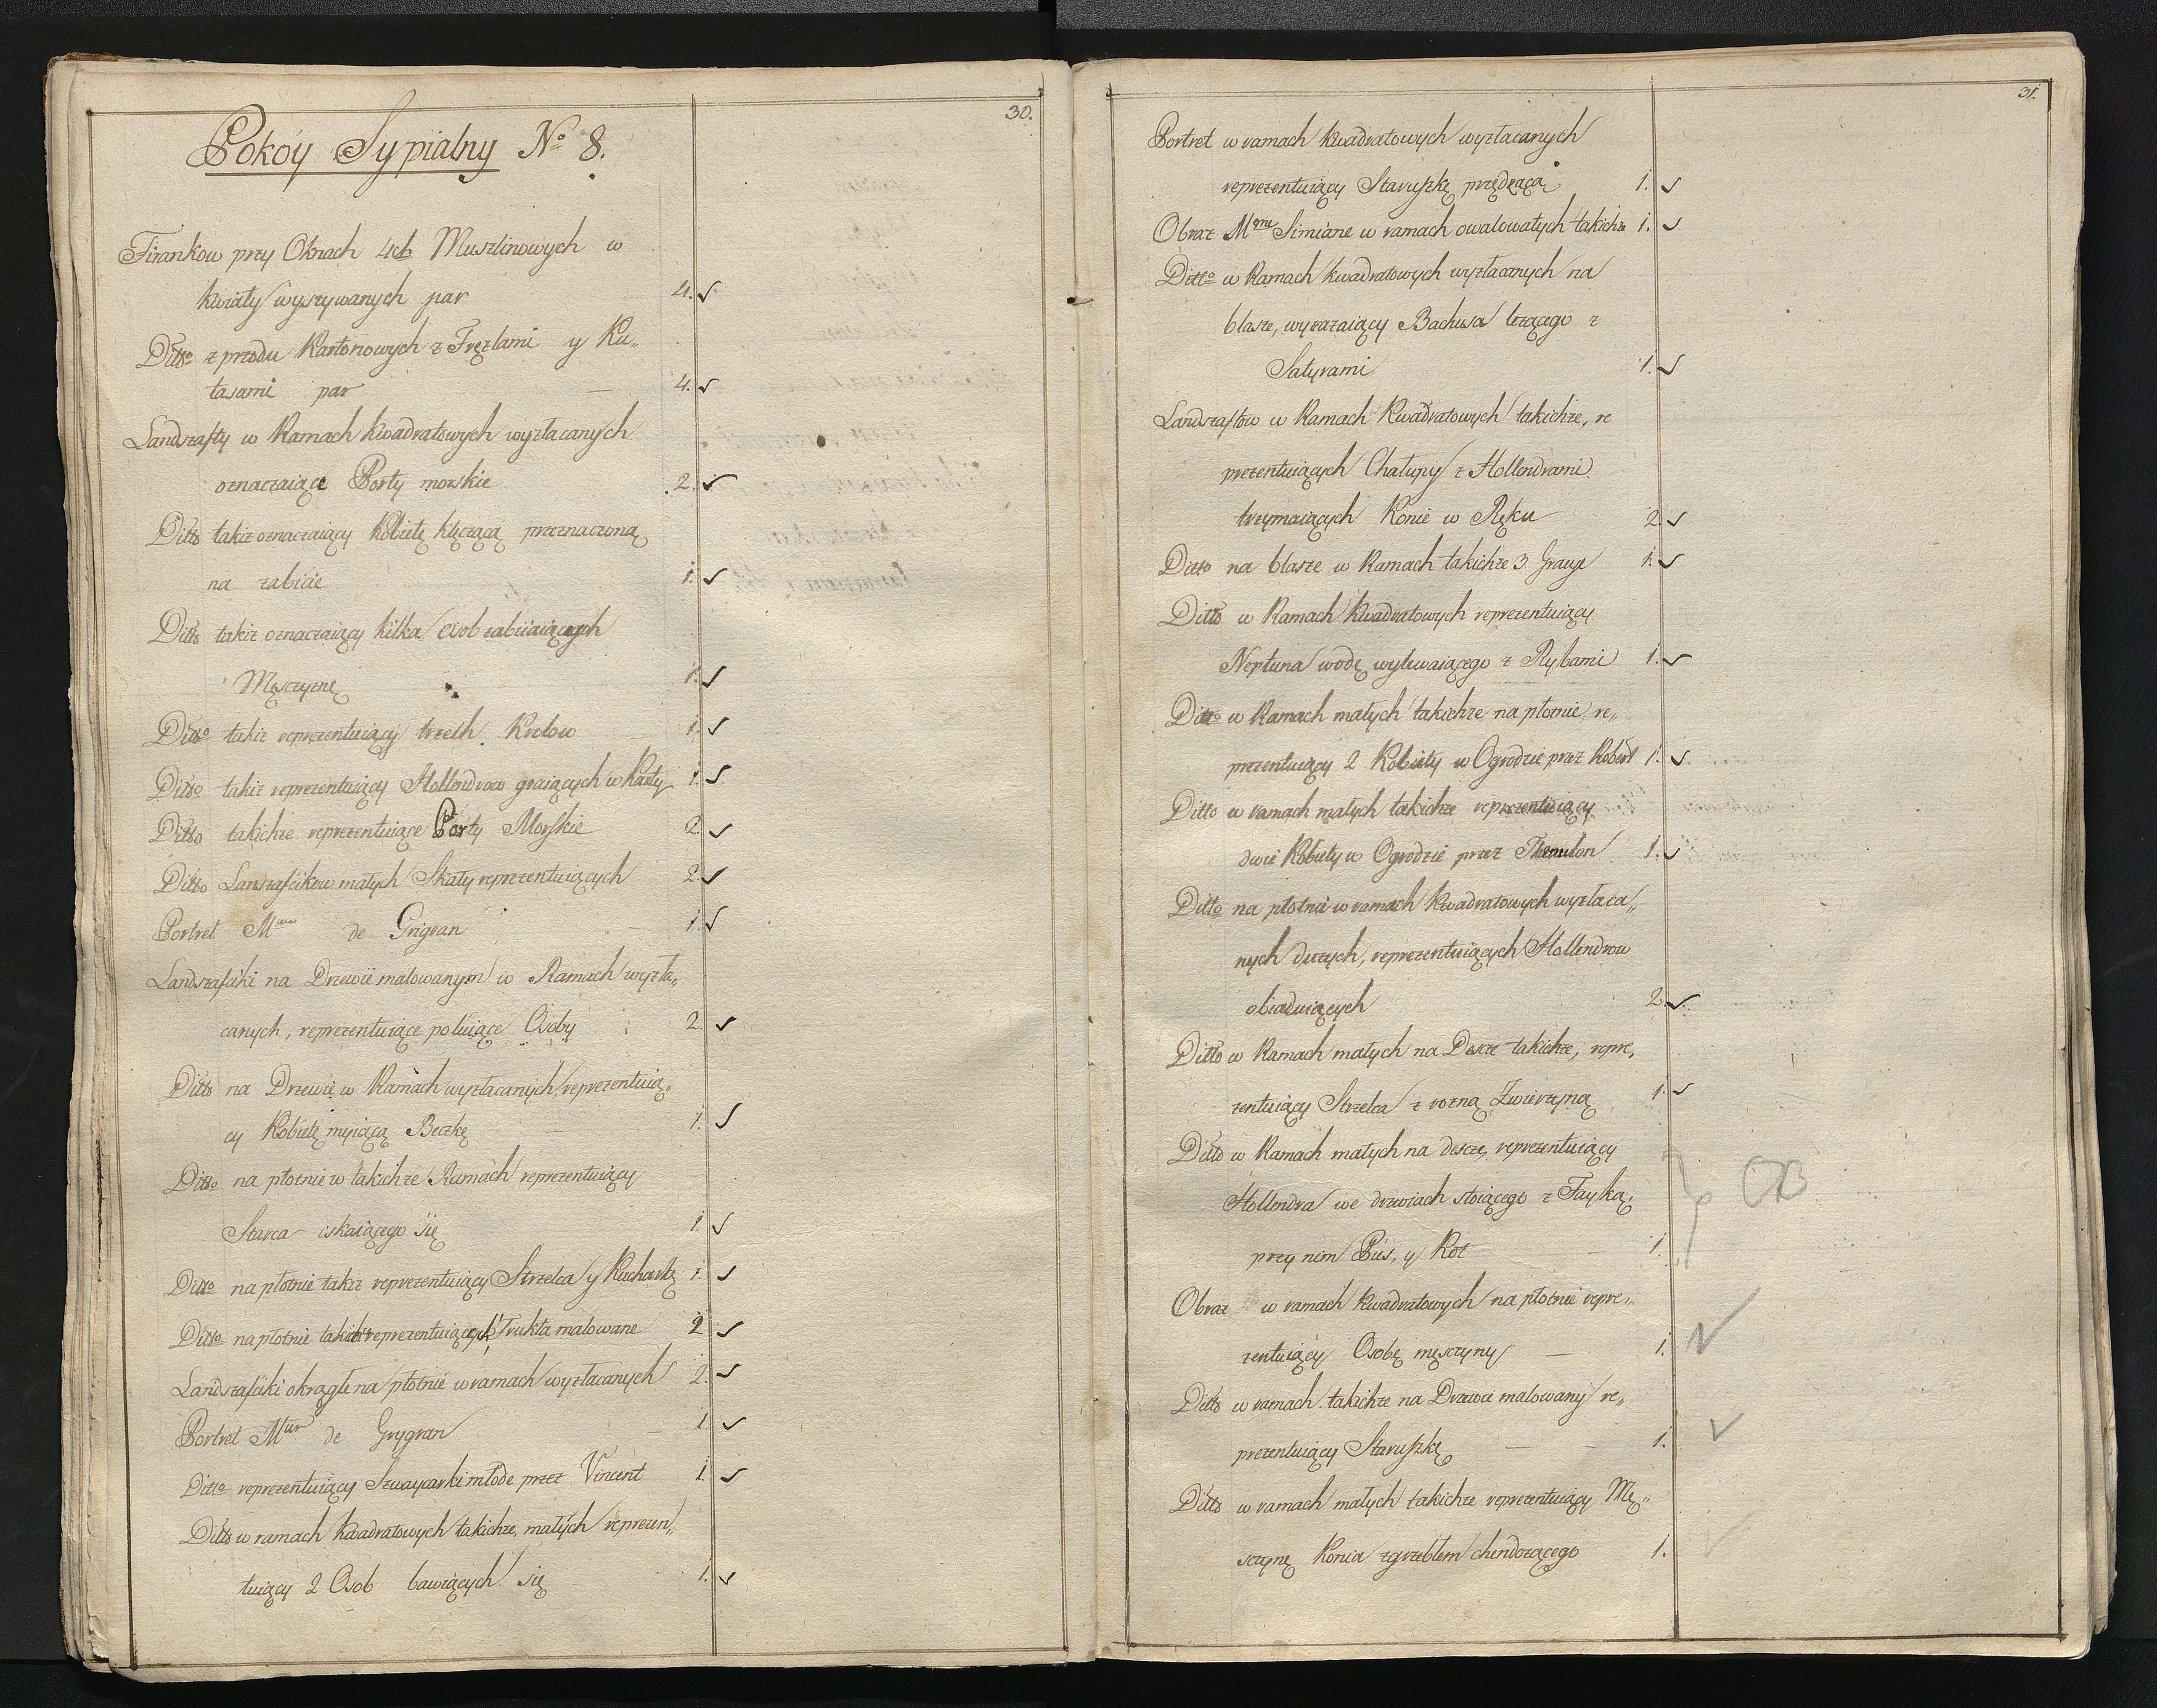 30.
Pokóy Sypialny No 8.
Firankow przy Oknach 4ch Muszlinowych w
kwiaty wyszywanych par 4. ✓
Ditto z przodu Kartonowych z Fręzlami y Ku„
tasami par — 4. ✓
Landszafty w Ramach kwadratowych wyzłacanych
oznaczaiące Porty morskie 2. ✓
Ditto takiż oznaczaiący Kobietę klęczącą przeznaczoną
na zabicie 1. ✓
Ditto takiż oznaczaiący kilka Osob zabiiaiących
Męszczyznę 1. ✓
Ditto takiż reprezentuiący trzech Krolow — 1. ✓
Ditto takiż reprezentuiący Hollendrow graiących w Karty 1. ✓
Ditto takichże reprezentuiące Porty Morskie 2 ✓
Ditto Landszafcikow małych Skały reprezentuiących 2. ✓
Portret Mme de Grigran — 1. ✓
Landszafciki na Drzewie malowanym w Ramach wyzła„
canych, reprezentuiące poluiące Osoby 2. ✓
Ditto na Drzewie w Ramach wyzłacanych reprezentuią„
cy Kobietę myiącą Beczkę — 1. ✓
Ditto na płotnie w takichże Ramach reprezentuiący
Starca iskaiącego się 1. ✓
Ditto na płotnie takiż reprezentuiący Strzelca y Kucharkę 1. ✓
Ditto na płotnie takichż reprezentuiących Frukta malowane 2 ✓
Landszafciki okrągłe na płotnie w ramach wyzłacanych 2. ✓
Portret Mur de Grygran — 1. ✓
Ditto reprezentuiący Szwaycarki młode przez Vincent 1. ✓
Ditto w ramach kwadratowych takichże, małych reprezen„
tuiący 2 Osob bawiących się 1. ✓
31.
Portret w ramach kwadratowych wyzłacanych
reprezentuiący Staruszkę przędzącą 1. ✓
Obraz Mme Simiane w ramach owalowatych takichże 1. ✓
Ditto w Ramach kwadratowych wyzłacanych na
blasze, wyrażaiący Bachusa leżącego z
Satyrami 1. ✓
Landszaftow w Ramach Kwadratowych takichże, re
prezentuiących Chałupy z Hollendrami
trzymaiących Konie w Ręku 2. ✓
Ditto na blasze w Ramach takichże 3. Gracye 1. ✓
Ditto w Ramach Kwadratowych reprezentuiący
Neptuna wodę wylewaiącego z Rybami 1. ✓
Ditto w Ramach małych takichże na płotnie, re„
prezentuiący 2 Kobiety w Ogrodzie przez Robert 1. ✓
Ditto w ramach małych takichże reprezentuiący
dwie Kobiety w Ogrodzie przez 1. ✓
Ditto na płotnie w ramach kwadratowych wyzłaca„
nych dużych, reprezentuiących Hollendrow
obiaduiących 2 ✓
Ditto w Ramach małych na Desce takichże, repre„
zentuiący Strzelca z rożną Zwierzyną 1. ✓
Ditto w Ramach małych na desce, reprezentuiący
Hollendra we drzwiach stoiącego z Fayką,
przy nim Pies, y Kot — 1.
Obraz w ramach kwadratowych na płotnie repre„
zentuiący Osobę męszczyny — 1. ✓
Ditto w ramach takichże na Drzewie malowany re„
prezentuiący Staruszkę — — 1. ✓
Ditto w ramach małych takichże reprezentuiący Mę„
szczynę Konia zgrzebłem chendożącego 1. ✓